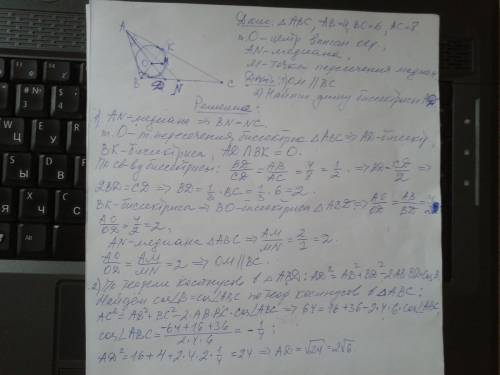 Дано: △ABC, AB=4, BC=6, AC=8
т. O-центр впис. окр.
AN-медиана,
M-точка пересечения медиан
1) OM || BC
2) Найти длину биссектрисы
A
K
O
B
D
N
C
Решение:
1) AN-медиана ⇒ BN=NC.
т. O-т. пересечения биссектрис △ABC ⇒ AD-биссек.,
BK-биссектриса, AD∩BK=O.
По св-ву биссектрисы: BD/CD = AB/AC = 4/8 = 1/2 ⇒ BD = CD/2 ⇒
2BD=CD ⇒ BD = 1/3·BC = 1/3·6=2.
BK-биссектриса ⇒ BO-биссектриса △ABD ⇒ AO/OD = AB/BD =
AO/OD = 4/2 = 2,
AN-медиана △ABC ⇒ AM/MN = 2/1 = 2.
AO/OD = AM/MN = 2 ⇒ OM || BC.
2) По теореме косинусов в △ABD: AD²=AB²+BD²-2AB·BD·cosB
Найдем cos∠B=cos∠ABC по теор косинусов в △ABC:
AC²=AB²+BC²-2·AB·BC·cos∠ABC ⇒ 64=16+36-2·4·6·cos∠ABC,
cos∠ABC = (-64+16+36)/(2·4·6) = -1/4;
AD²=16+4+2·4·2·1/4=24 ⇒ AD=√24=2√6.